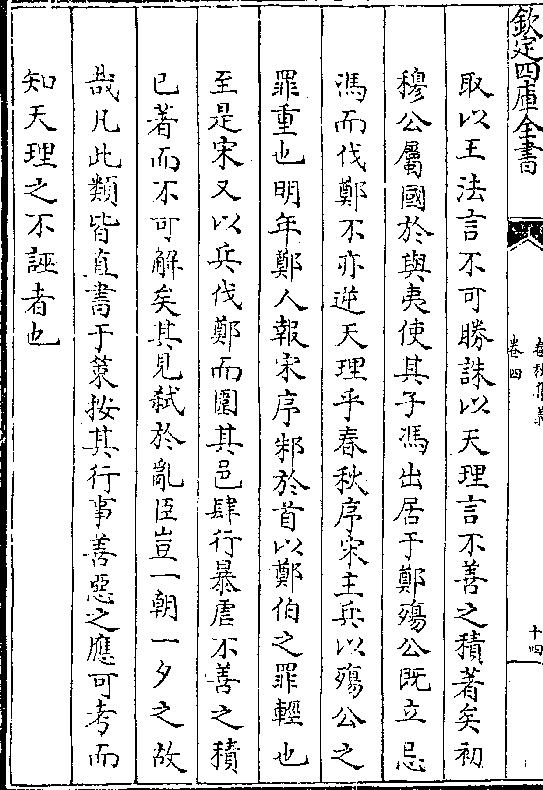 欽定四庫全書
春秋集義
卷四
十四
取以王法言不可勝誅以天理言不善之積著矣初
穆公屬國於與夷使其子馮出居于鄭殤公既立忌
馮而伐鄭不亦逆天理乎春秋序宋主兵以殤公之
罪重也明年鄭人報宋序邾於首以鄭伯之罪輕也
至是宋又以兵伐鄭而圍其邑肆行暴虐不善之積
已著而不可解矣其見弑於亂臣豈一朝一夕之故
哉凡此類皆直書于策按其行事善惡之應可考而
知天理之不誣者也